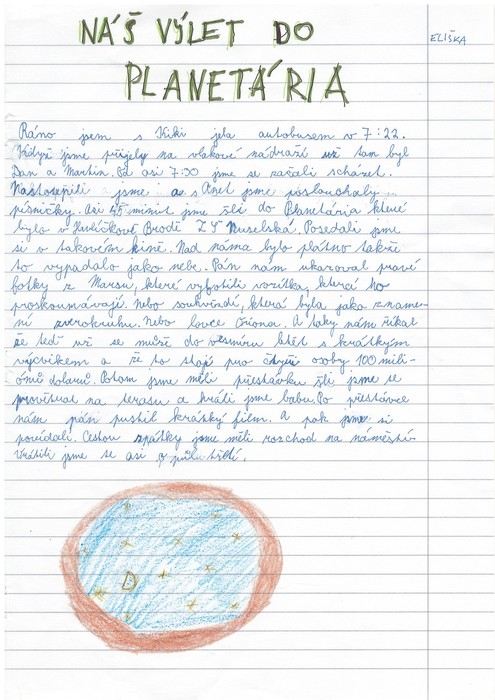 NÁŠ VÝLET DO
ELIŠKA
PLANETÁRIA
Ráno jsem s Kiki jela autobusem v 7:22.
Když jsme přijely na vlakové nádraží už tam byl
Dan a Martin. Od asi 7:30 jme se začali scházet.
Nastoupili jsme a s Anet jsme poslouchaly
písničky. Asi 45 minut jsme šli do Planetária které
bylo v Havlíčkově Brodě ZŠ Nuselská. Posedali jsme
si v takovém kině. Nad náma bylo plátno takže
to vypadalo jako nebe. Pán nám ukazoval pravé
fotky z Marsu, které vyfotili vozítka, která ho
proskoumávají. Nebo souhvězdí, která byla jako zname-
ní zvěrokruhu. Nebo lovce Oriona. A taky nám říkal
že teď už se může do vesmíru letět s krátkým
výcvikem a že to stojí pro čtyři osoby 100 mili-
ónů dolarů. Potom jsme měli přestávku šli jsme se
provětrat na terasu a hráli jsme babu. Po přestávce
nám pán pustil krátký film. A pak jsme si
povídali. Cestou zpátky jsme měli rozchod na náměstí.
Vrátili jsme se asi o půlu třetí.